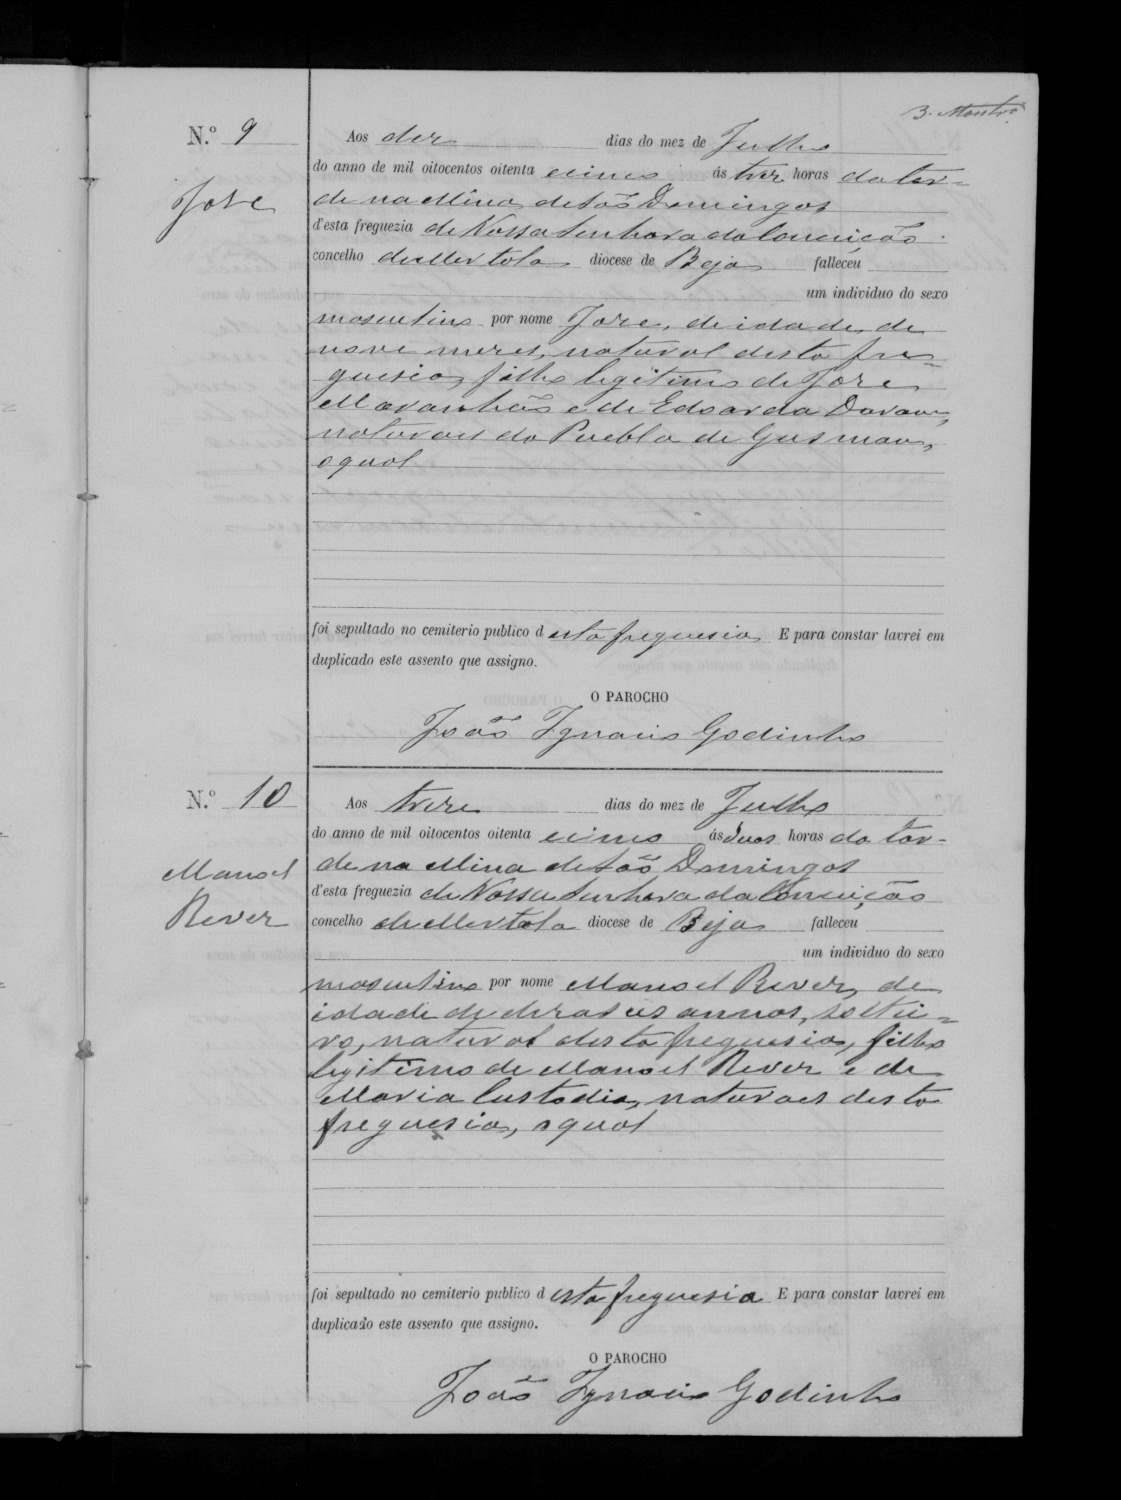 3. Montrº
N.º 9
José
Aos dez dias do mez de Julho
do anno de mil oitocentos oitenta e cinco ás trez horas da tar-
de na Mina de São Domingos
d'esta freguezia de Nossa Senhora da Conceição
concelho de Mertola diocese de Beja falleceu
um individuo do sexo
masculino por nome José, de idade de
nove mezes, natural desta fre-
guesia, filho legitimo de José
Maranhão e de Edoarda
naturaes da Puebla de Gusman,
o qual
foi sepultado no cemiterio publico d esta freguesia E para constar lavrei em
duplicado este assento que assigno.
O PAROCHO
João Ignacio Godinho
N.º 10
Manoel
Rever
Aos treze dias do mez de Julho
do anno de mil oitocentos oitenta e cinco ás duas horas da tar-
de na Mina de São Domingos
d'esta freguezia de Nossa Senhora da Conceição
concelho de Mertola diocese de Beja falleceu
um individuo do sexo
masculino por nome Manoel Rever, de
idade de dezaseis annos, soltei-
ro, natural desta freguesia, filho
legitimo de Manoel Rever e de
Maria Custodia, naturaes desta
freguesia, o qual
foi sepultado no cemiterio publico d esta freguesia E para constar lavrei em
duplicado este assento que assigno.
O PAROCHO
João Ignacio Godinho